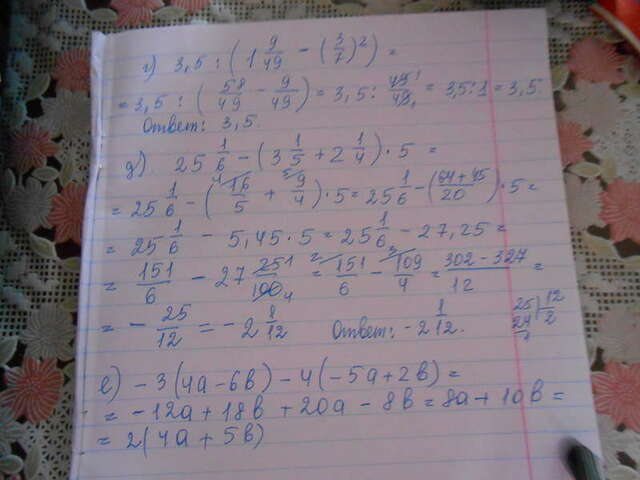 г) 3,5 : (1 9/49 - (3/7)²) =
= 3,5 : (58/49 - 9/49) = 3,5 : 49¹/49₁ = 3,5 : 1 = 3,5.
Ответ: 3,5.
д). 25 1/6 - (3 1/5 + 2 1/4) · 5 =
= 25 1/6 - (⁴⁄16/5 + ⁵⁄9/4) · 5 = 25 1/6 - (64 + 45/20) · 5 =
= 25 1/6 - 5,45 · 5 = 25 1/6 - 27,25 =
= 151/6 - 27 25¹/100₄ = ²⁄151/6 - ³⁄109/4 = 302 - 327/12 =
= - 25/12 = - 2 1/12 Ответ: - 2 1/12. 25 | 12
24 | 2
1
е) - 3(4а - 6в) - 4(- 5а + 2в) =
= - 12а + 18в + 20а - 8в = 8а + 10в =
= 2(4а + 5в)